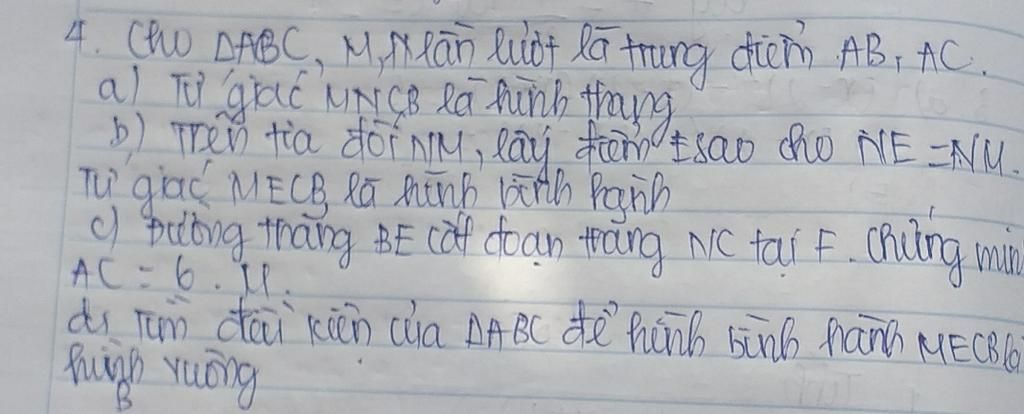 4. Cho ΔABC, M,N lần lượt là trung điểm AB, AC.
a) Tứ giác MNCB là hình thang
b) Trên tia đối NM, lấy điểm E sao cho NE = NM.
Tứ giác MECB là hình bình hành
c) Đường thẳng BE cắt đoạn thẳng NC tại F. Chứng min
AC = 6.
d) Tìm điều kiện của ΔABC để hình bình hành MECB là
hình vuông
B